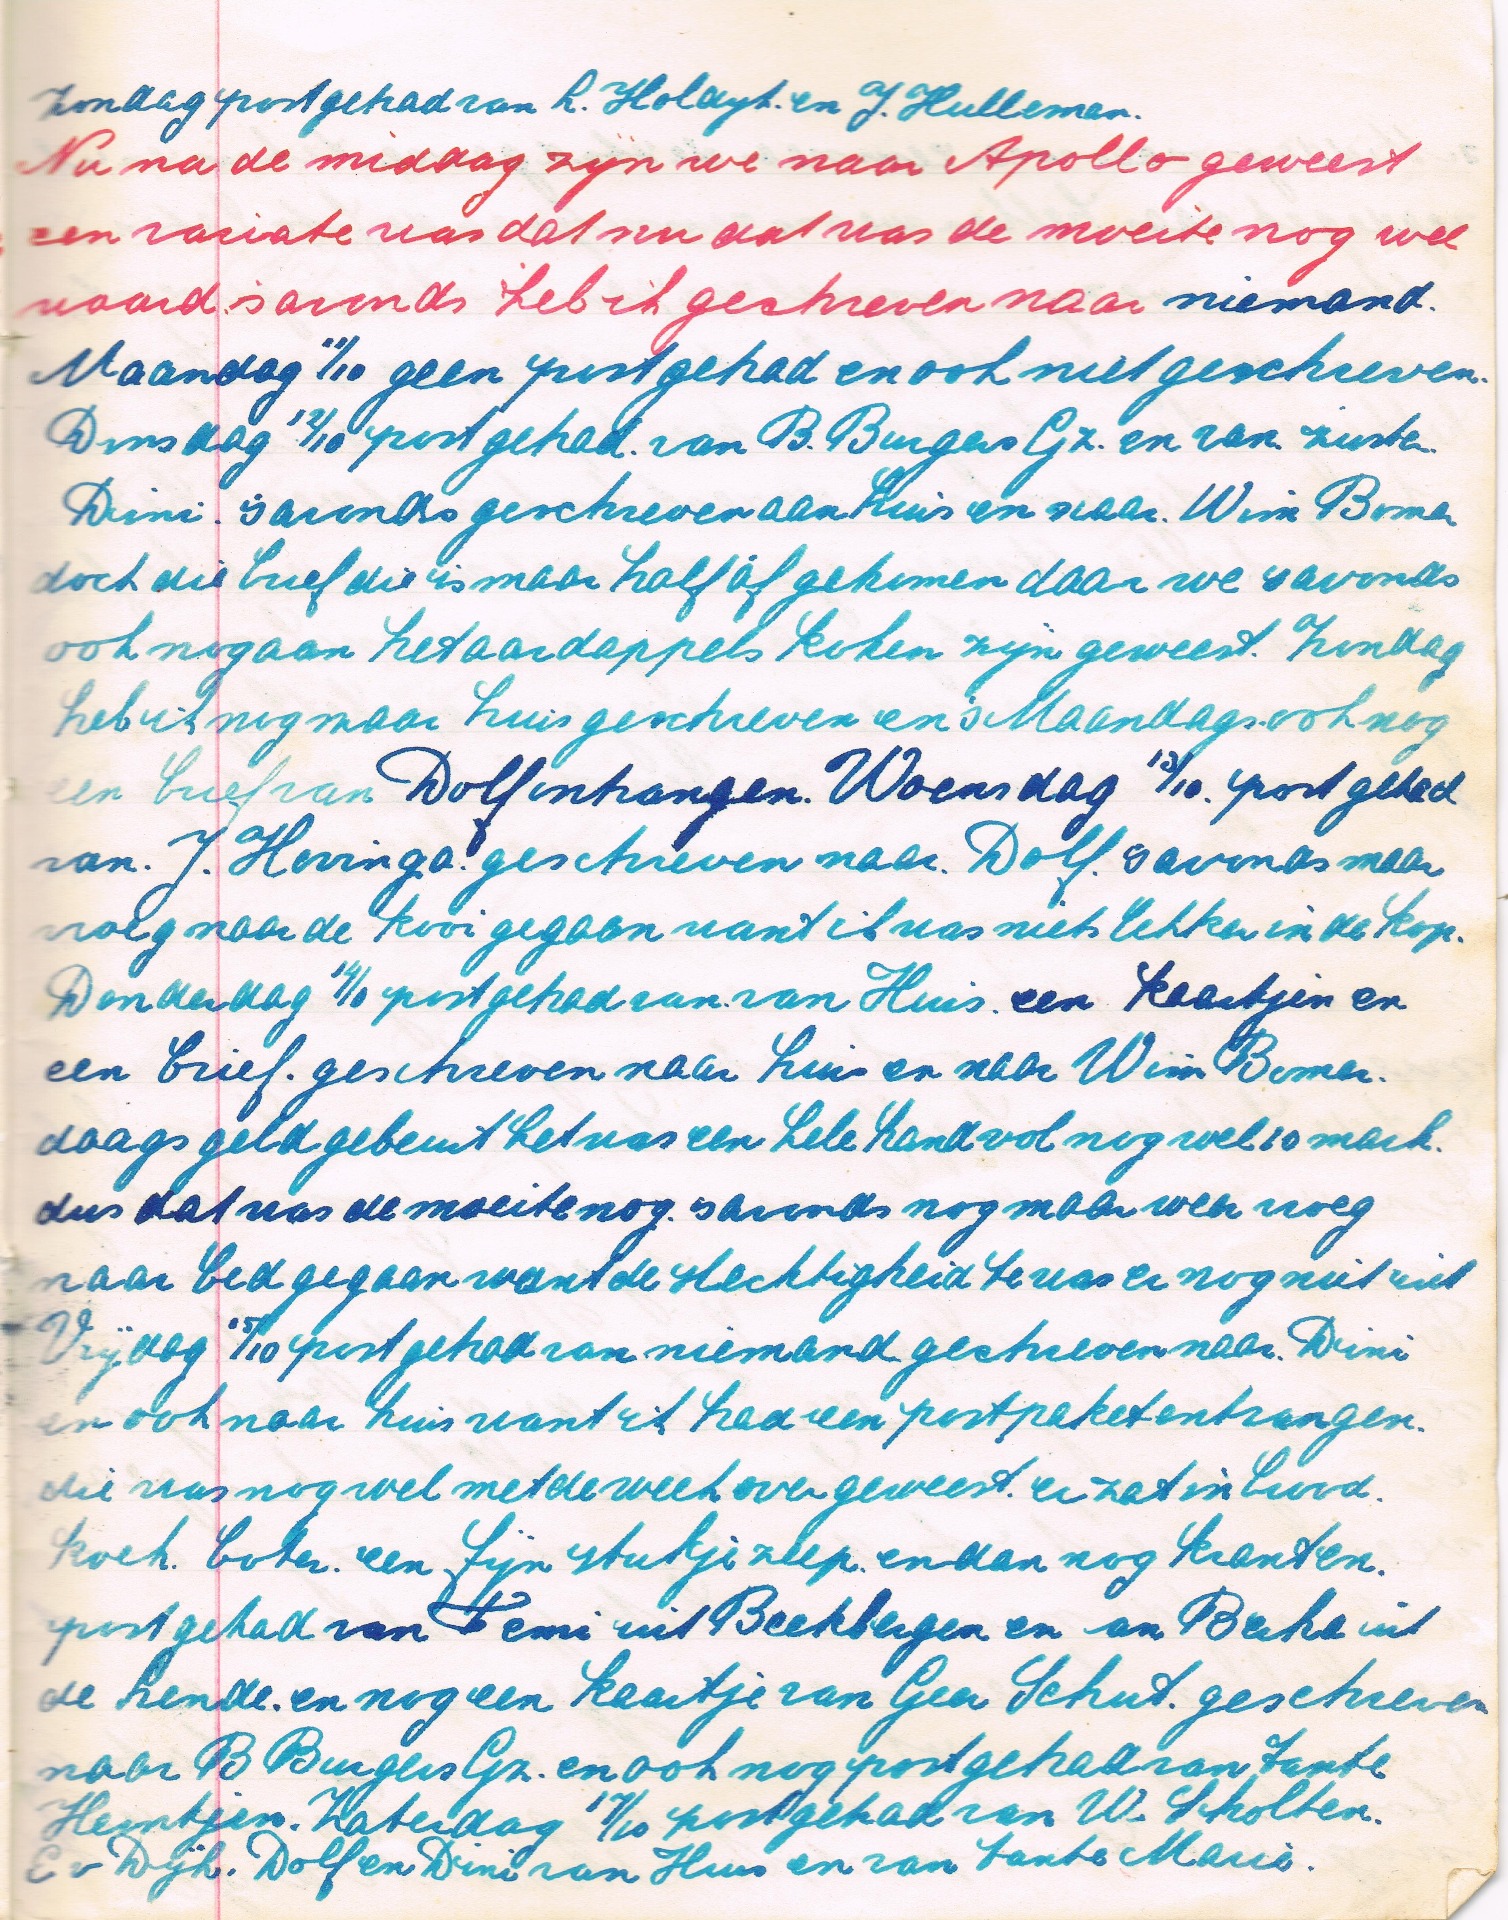 Zondag post gehad van L. Holdyk. en J. Hulleman.
Nu na de middag zijn we naar Apollo geweest
een variate was dat nu dat was de moeite nog wel
waard. s'avonds heb ik geschreven naar niemand.
Maandag 11/10 geen post gehad en ook niet geschreven.
Dinsdag 12/10 post gehad. van B. Burgers Gz. en van. zuster.
Dini. s'avonds geschreven aan huis en naar. Wim Bomer
doch die brief die is maar half af gekomen daar we s'avonds
ook nog aan het aardappels koken zijn geweest. Zondag
heb ik nog maar huis geschreven en 's Maandags. ook nog
een brief van Dolf ontvangen. Woensdag 13/10. post gehad
van. J. Hovinga. geschreven naar. Dolf. s'avonds maar
vroeg naar de kooi gegaan want ik was niets lekker in de kop.
Donderdag 14/10 post gehad van. van Huis. een kaartjen en
een brief. geschreven naar huis en naar Wim Bomer.
daags geld gebeurt het was een hele hand vol nog wel 10 mark.
dus dat was de moeite nog. s'avonds nog maar weer vroeg
naar bed gegaan want de slechtigheid te was er nog niet uit
Vrijdag 15/10 post gehad van niemand geschreven naar. Dini
en ook naar huis want ik had een postpaket ontvangen.
die was nog wel met de week over geweest. er zat in brood.
koek. boter. een fijn stukje zeep. en dan nog kranten.
post gehad van Femi uit Beekbergen en an Berha uit
de hende. en nog een kaartje van Geer Schut. geschreven
naar B Burgers Gz. en ook nog post gehad van tante
Heintjen. Zaterdag 17/10 post gehad van W. Scholten.
E v Dijk. Dolf en Dini van Huis en van tante Marie.